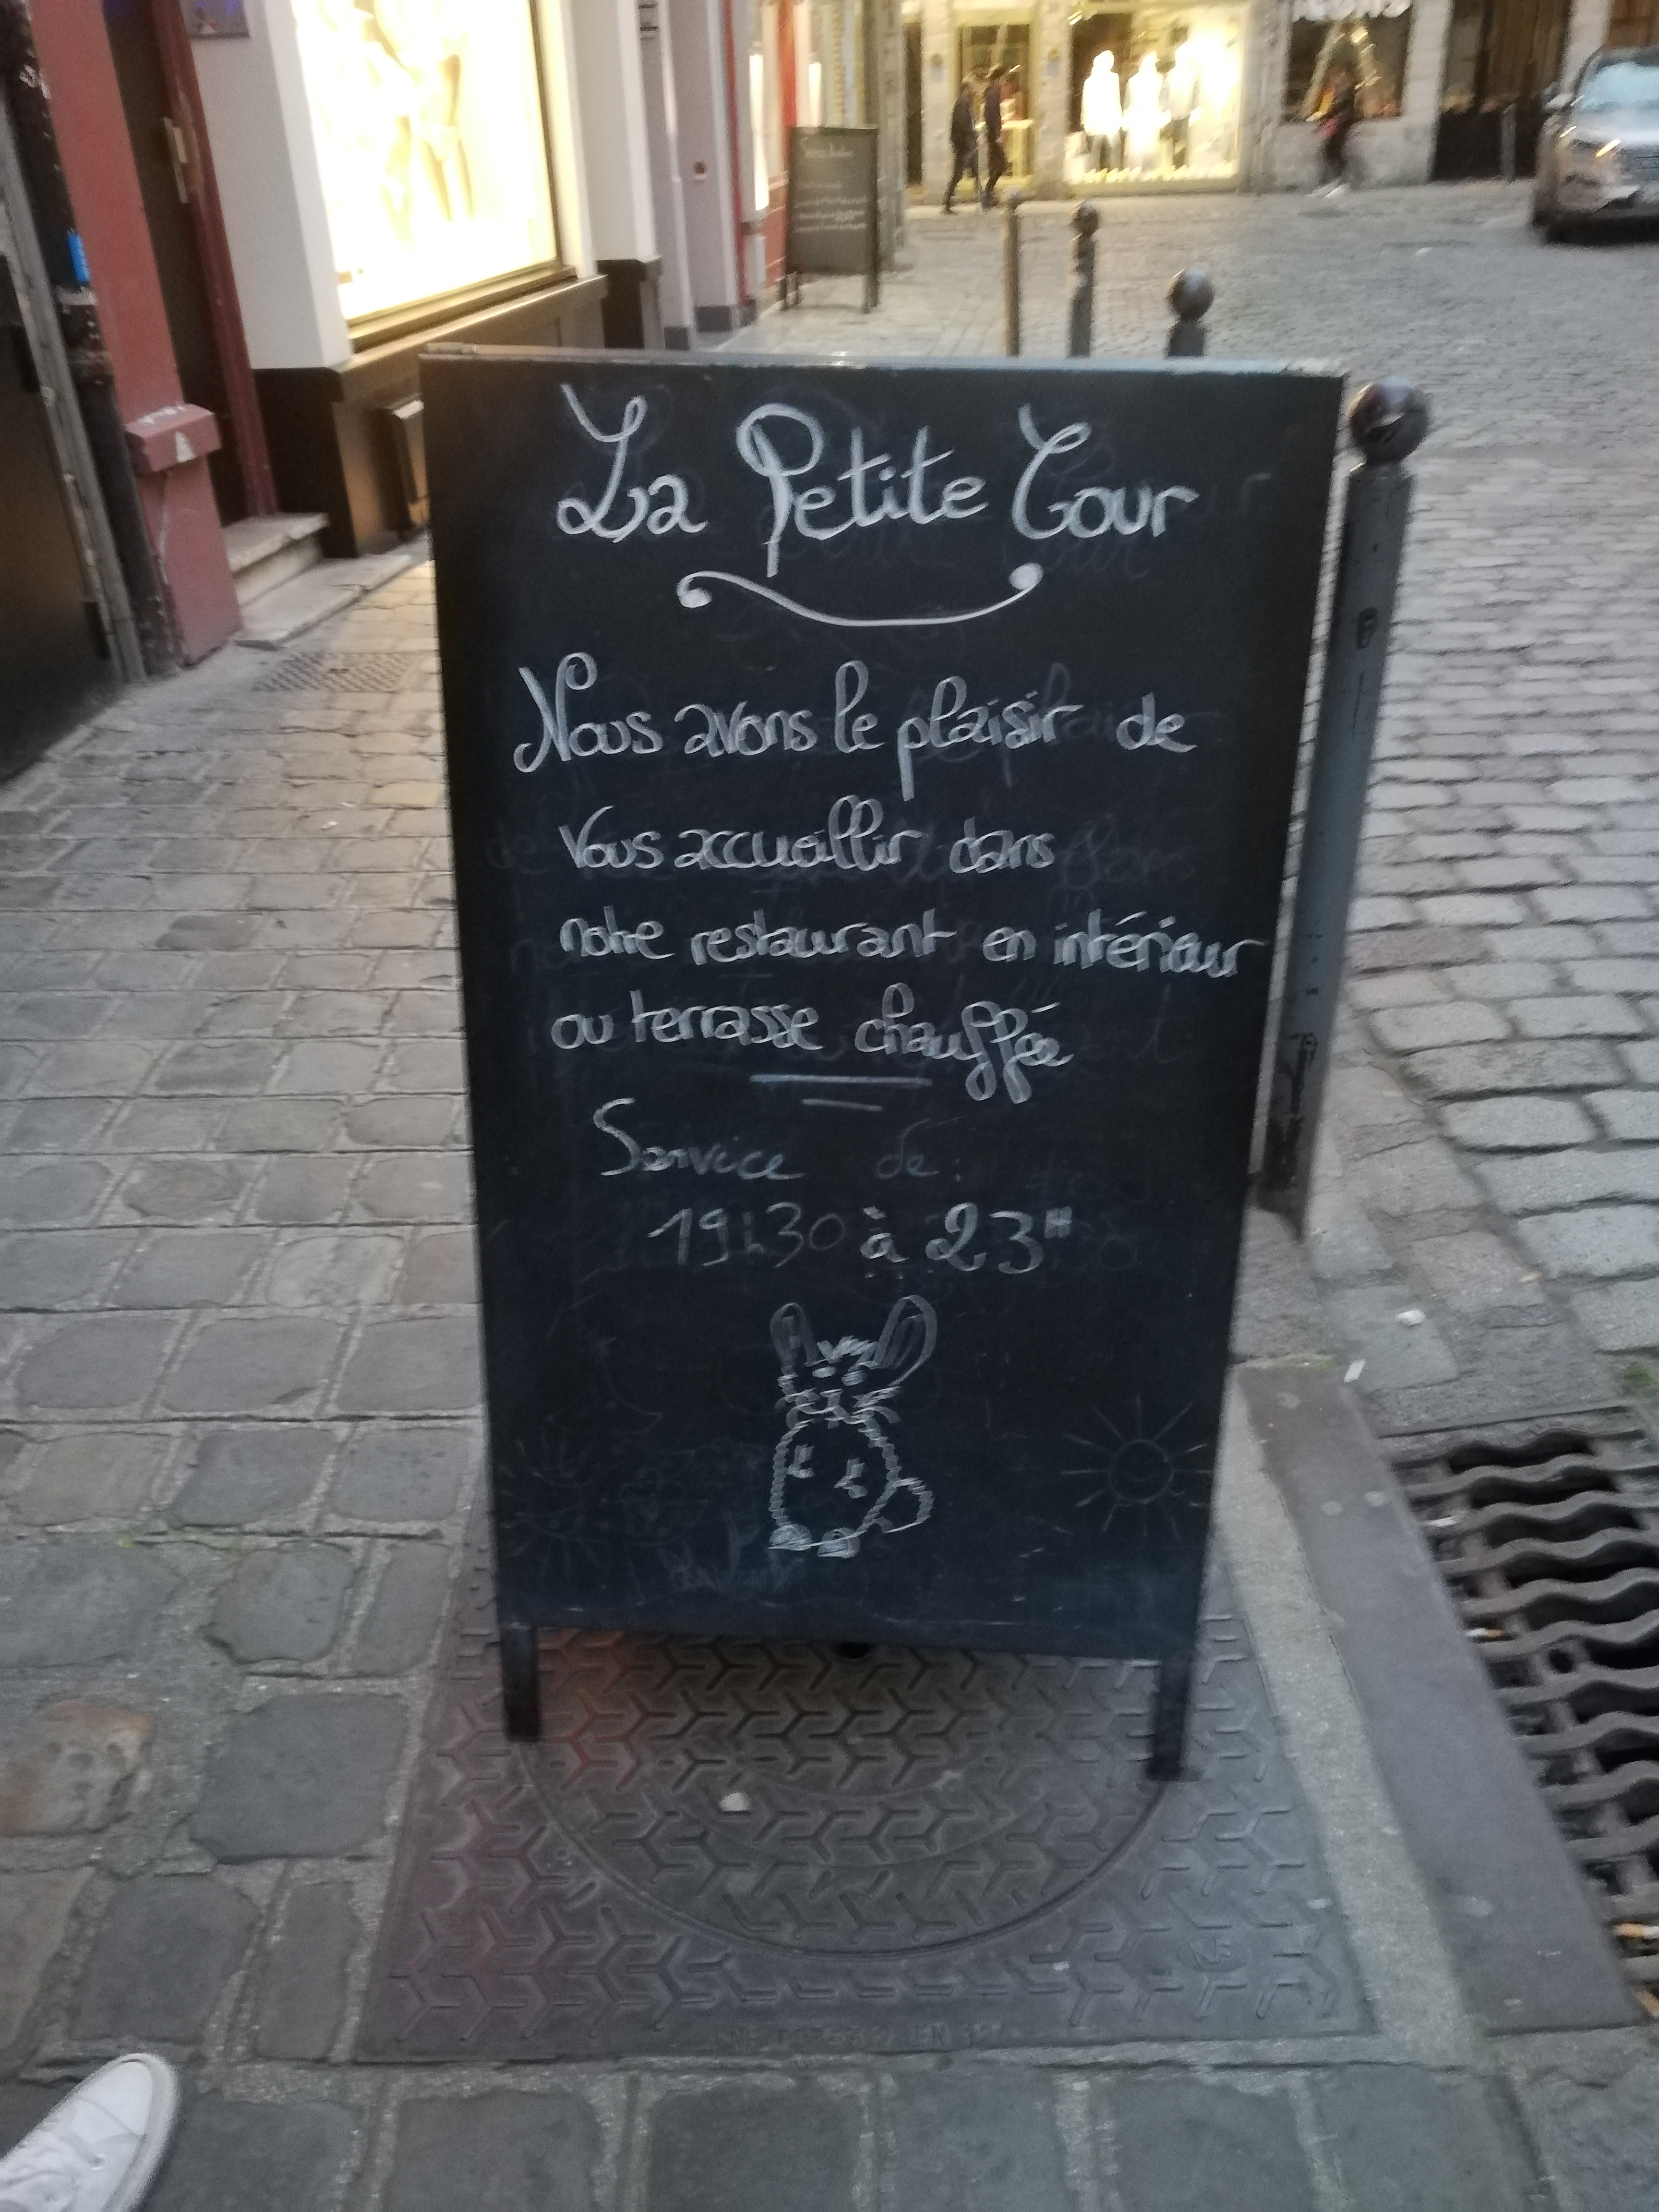 La Petite Cour
Nous avons le plaisir de
vous accueillir dans
notre restaurant en intérieur
ou terrasse chauffée
Service de :
19h30 à 23H